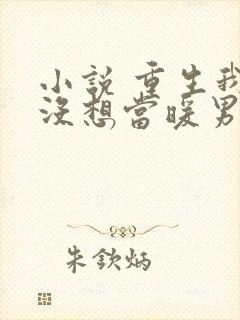 小說 重生我
沒想當暖男
朱欽炳